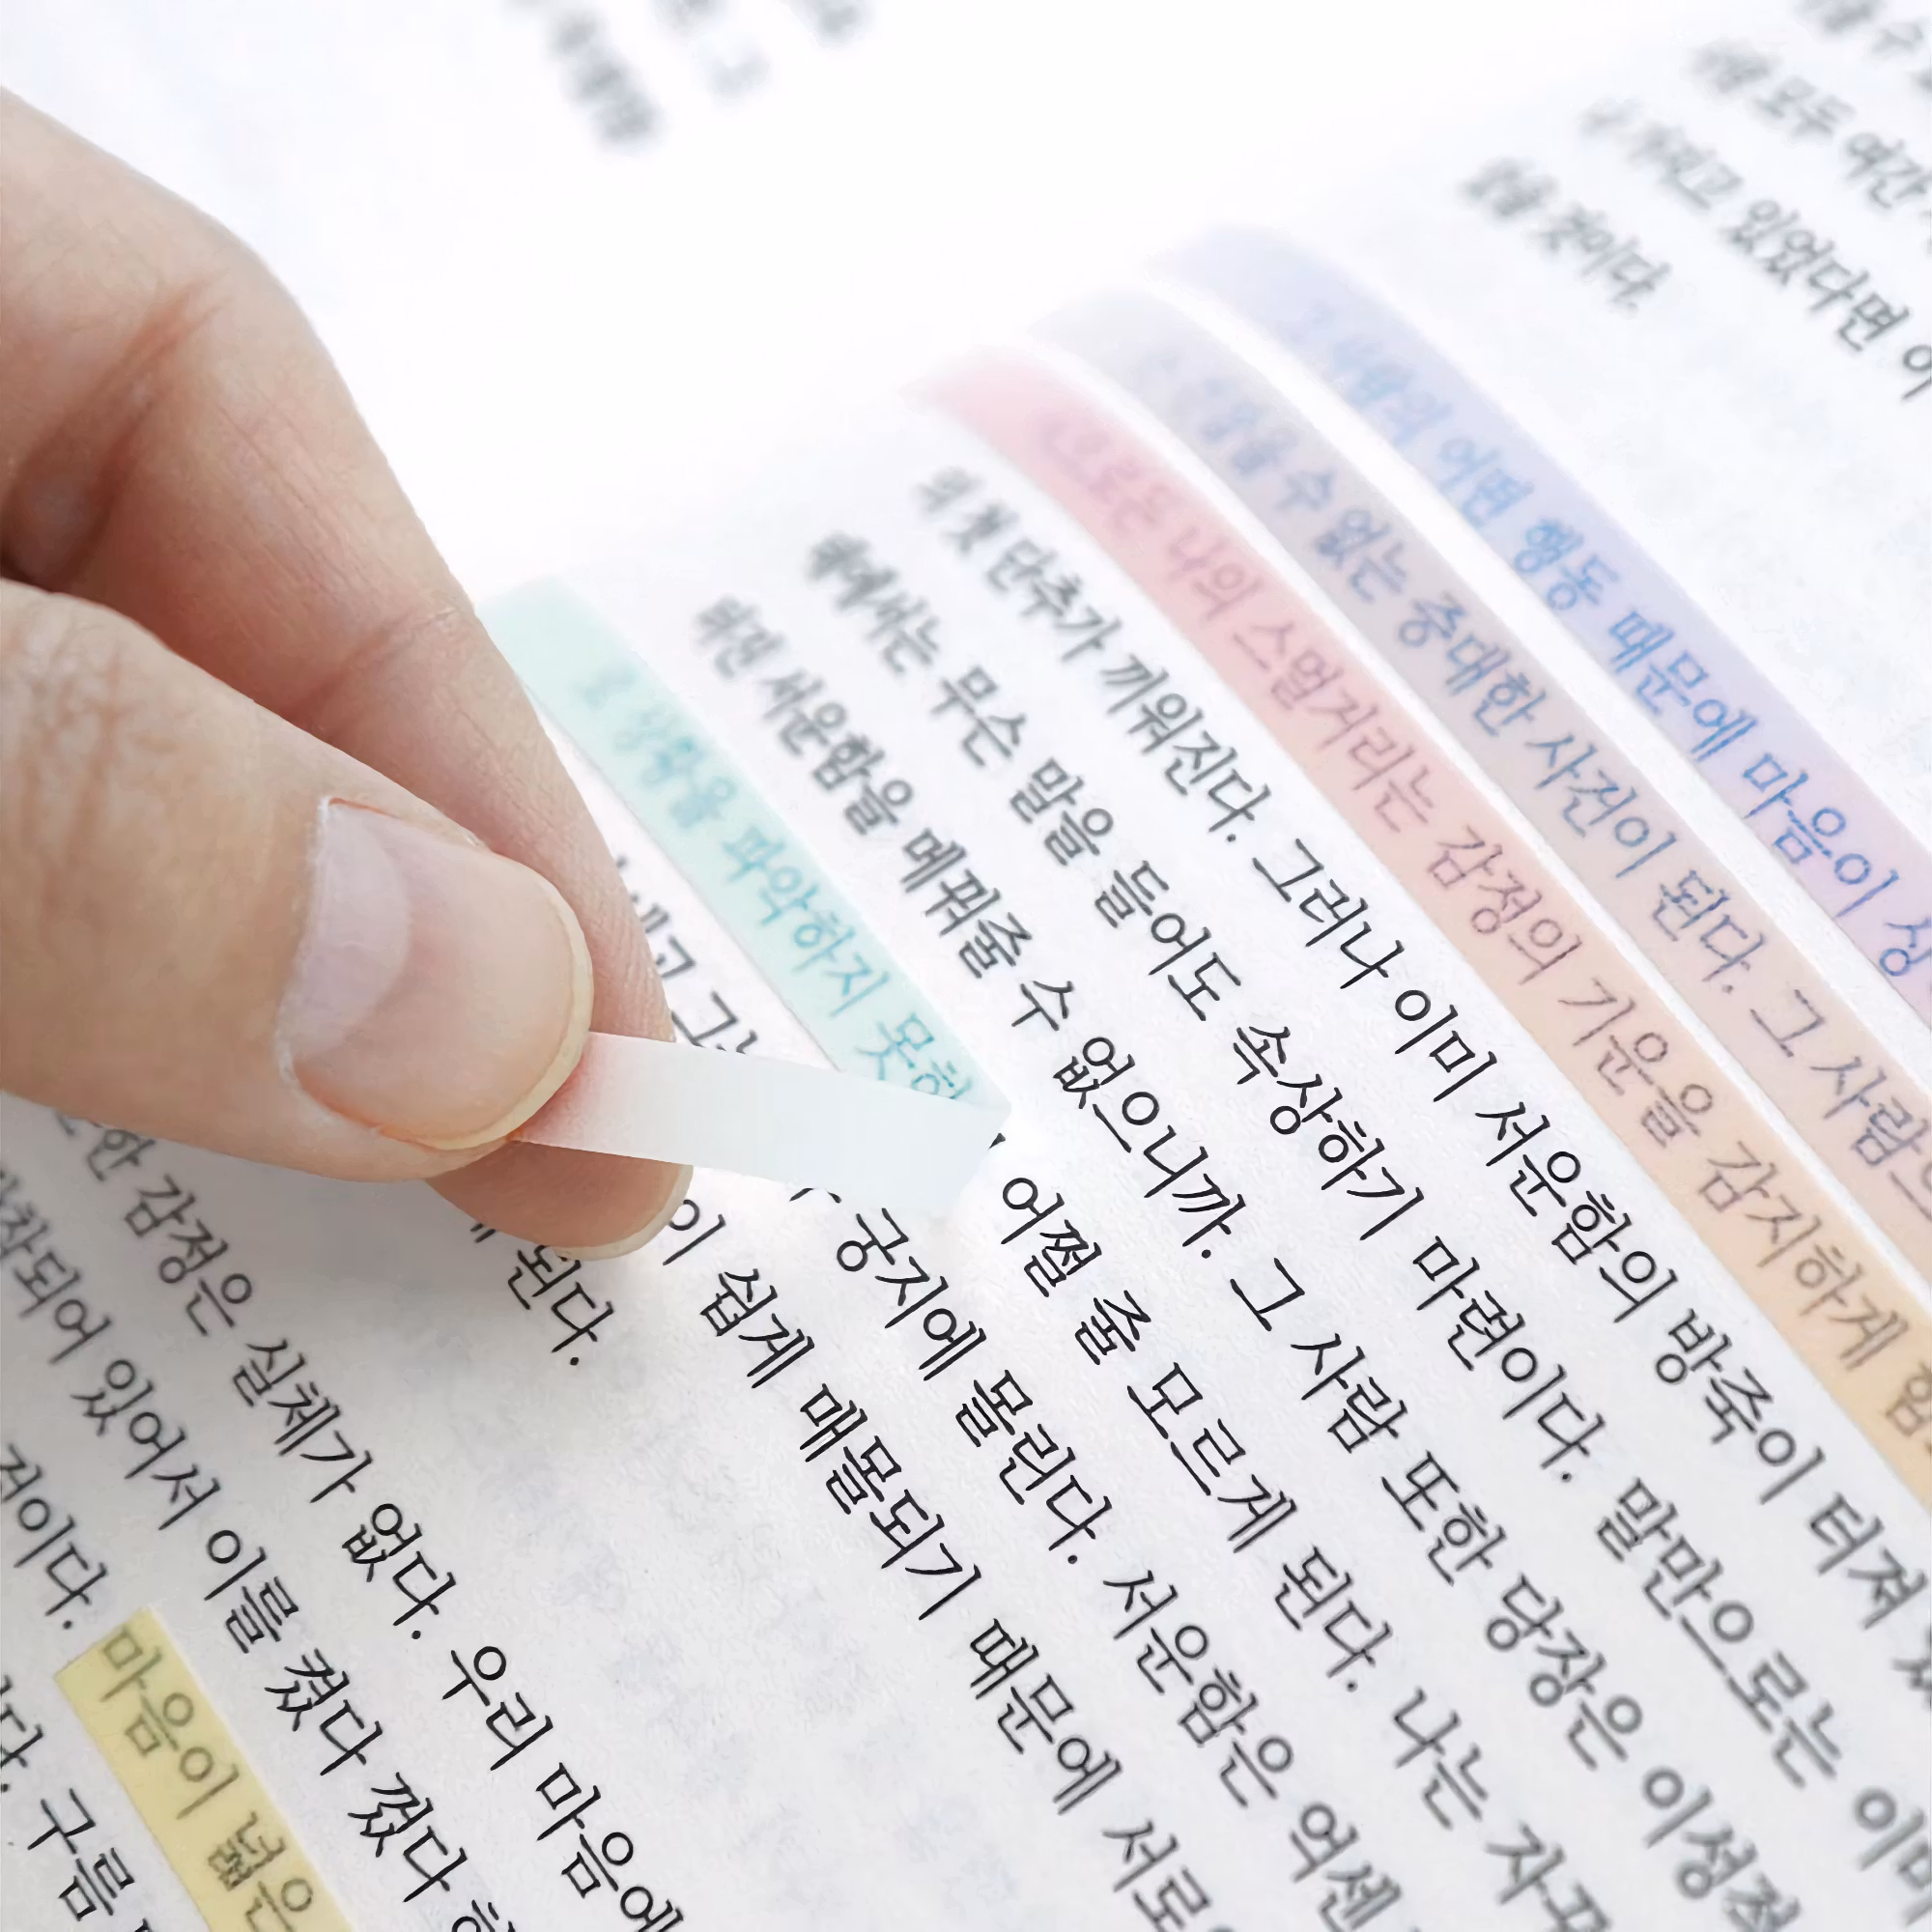 수
모두 여간
가지고 있었다면 이
않을 것이다.
어떤 행동 때문에 마음이 상
수 없는 중대한 사건이 된다. 그 사람의
나의 스멀거리는 감정의 기운을 감지하게 함
첫 단추가 끼워진다. 그러나 이미 서운함의 방죽이 터져
무슨 말을 들어도 속상하기 마련이다. 말만으로는 이미
서운함을 메꿔줄 수 없으니까. 그 사람 또한 당장은 이성적
상황을 파악하지 못해 어쩔 줄 모르게 된다. 나는 자꾸
궁지에 몰린다. 서운함은 억센
쉽게 매몰되기 때문에 서로
된다.
감정은 실체가 없다. 우리 마음에
있어서 이를 켰다 껐다
것이다. 마음이 넓은
구름